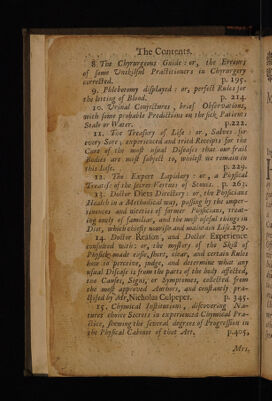 The Contents.
8 The Chyrurgeons Guide: or, the Errours
of some Unskilful Practitioners in Chyrurgery
corrected. p. 195.
9. Phlebotomy displayed: or, perfect Rules for
the letting of Blood. p. 214.
10. Urinal Conjectures, brief Observations,
with some probable Predictions on the sick Patients
Stale or Water. p. 222.
11. The Treasury of Life: or, Salves for
every Sore, experienced and tried Receipts for the
Cure of the most usual Diseases that our frail
Bodies are most subject to, whilest we remain in
this Life. p. 229.
12. The Expert Lapidary: or, a Physical
Treatise of the secret Vertues of Stones. p. 263.
13. Doctor Diets Directory: or, the Physicians
Health in a Methodical way, passing by the imper-
tinences and niceties of former Physicians, treat-
ing onely of familiar, and the most useful things in
Diet, which chiefly nourish and maintain Life. 279.
14. Doctor Reason, and Doctor Experience
consulted with: or, the mystery of the Skill of
Physick made easie, short, clear, and certain Rules
how to perceive, judge, and determine what any
usual Disease is from the parts of the body affected,
the Causes, Signs, or Symptomes, collected from
the most approved Authors, and constantly pra-
ctised by Mr. Nicholas Culpeper. p. 345.
15. Chymical Institutions, discovering Na-
tures choice Secrets in experienced Chymical Pra-
ctice, shewing the several degrees of Progression in
the Physical Cabinet of that Art. p. 405,
Mrs.